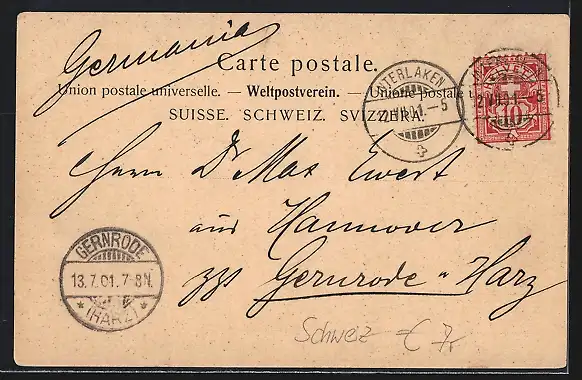 Germania
Carte postale.
Union postale universelle. — Weltpostverein. — Unione postale
SUISSE. SCHWEIZ. SVIZZERA.
INTERLAKEN
12.VII.01.–5
10
Herrn Dr Max Ewert
aus Hannover
GERNRODE
13.7.01.7-8N.
* (HARZ) *
zzt Gernrode a. Harz
Schweiz € 7,-